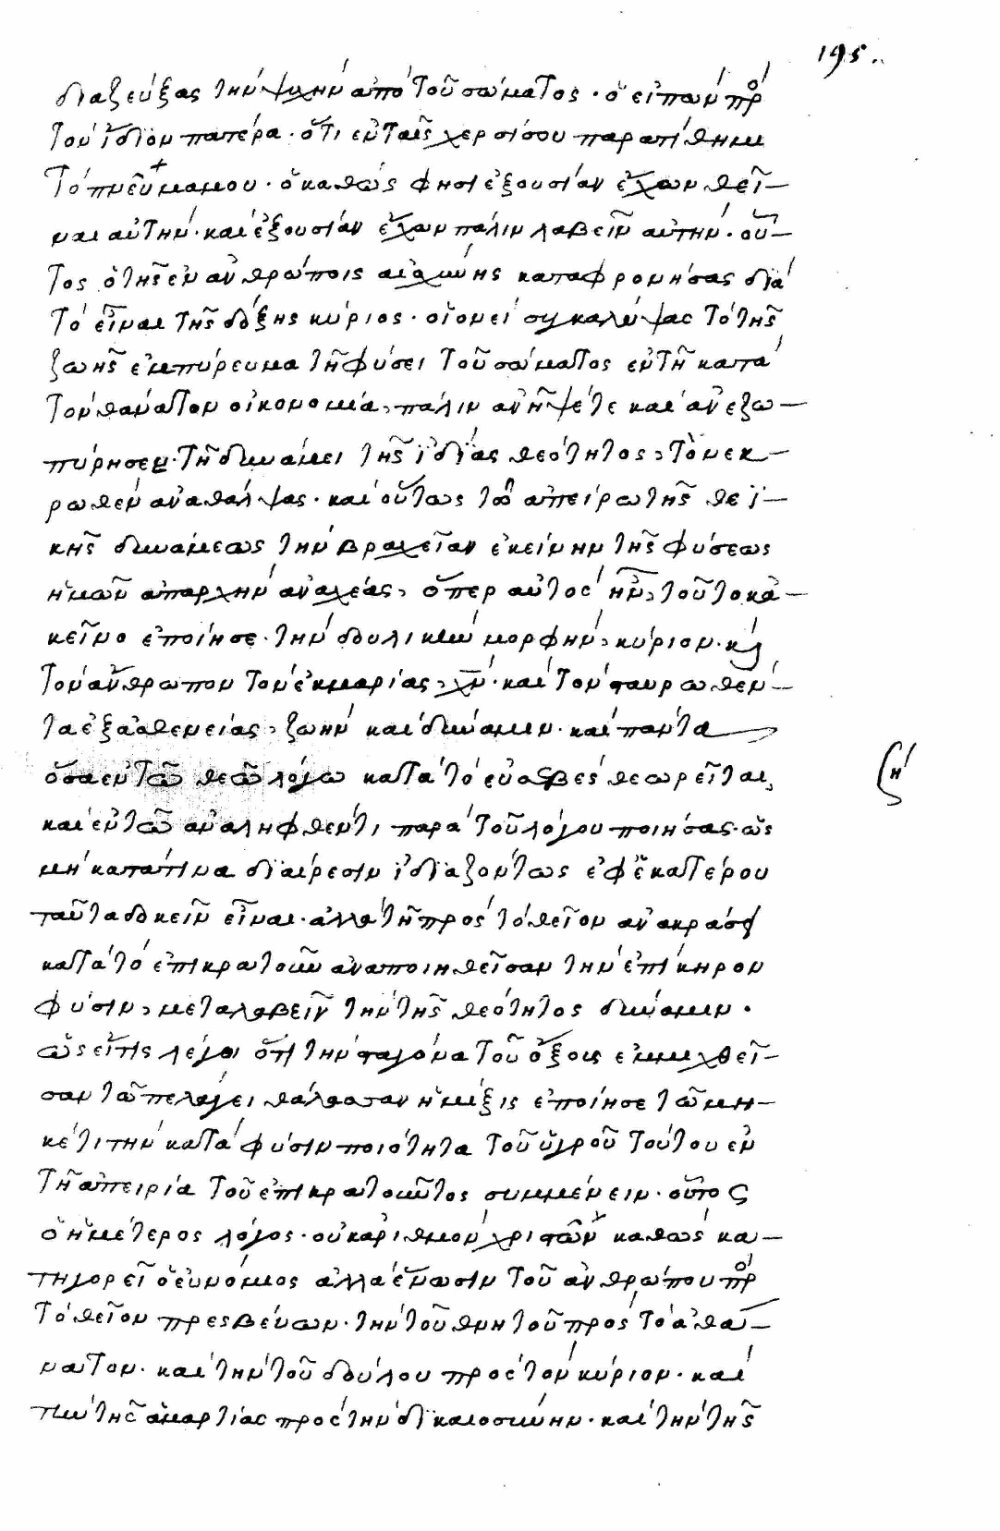 195.
διαζεύξας τὴν ψυχὴν ἀπὸ τοῦ σώματος · ὁ εἰπὼν πρ
τὸν ἴδιον πατέρα · ὅτι ἐν ταῖς χερσί σου παρατίθημι
τὸ πνεῦμα μου · ὁ καθώς φησι ἐξουσίαν ἔχων θεῖ–
ναι αὐτήν · καὶ ἐξουσίαν ἔχων πάλιν λαβεῖν αὐτήν · οὗ–
τος ὁ τῆς ἐν ἀνθρώποις αἰσχύνης καταφρονήσας διὰ
τὸ εἶναι τῆς δόξης κύριος · οἱονεὶ συγκαλύψας τὸ τῆς
ζωῆς ἐμπύρευμα τῇ φύσει τοῦ σώματος ἐν τῇ κατὰ
τὸν θάνατον οἰκονομία, πάλιν ἀνῆψέ τε καὶ ἀνεζω–
πύρησεν · τῇ δυνάμει τῆς ἰδίας θεότητος, τὸ νεκ–
ρωθὲν ἀναθάλψας · καὶ οὕτως τῶ ἀπείρω τῆς θεϊ–
κῆς δυνάμεως τὴν βραχεῖαν ἐκείνην τῆς φύσεως
ἡμῶν ἀπαρχὴν ἀναχέας, ὅπερ αὐτὸς ἦν, τοῦτο κἀ–
κεῖνο ἐποίησε · τὴν δουλικὴν μορφήν, κύριον · κ
τὸν ἄνθρωπον τὸν ἐκ μαρίας, χν · καὶ τὸν σταυρωθέν–
τα ἐξ ἀσθενείας, ζωὴν καὶ δύναμιν · καὶ πάντα
ὅσα ἐν τῶ θεῶ λόγω κατὰ τὸ εὐσεβὲς θεωρεῖται,
καὶ ἐν τῶ ἀναληφθέντι παρὰ τοῦ λόγου ποιήσας · ὡς
μὴ κατά τινα διαίρεσιν ἰδιαζόντως ἐφ' ἑκατέρου
ταῦτα δοκεῖν εἶναι · ἀλλὰ τῇ πρὸς τὸ θεῖον ἀνακράσει
κατὰ τὸ ἐπικρατοῦν ἀναποιηθεῖσαν τὴν ἐπίκηρον
φύσιν, μεταλαβεῖν τὴν τῆς θεότητος δύναμιν ·
ὡς εἴ τις λέγοι ὅτι τὴν σταγόνα τοῦ ὄξους ἐμμιχθεῖ–
σαν τῶ πελάγει θάλασσαν ἡ μίξις ἐποίησε τῶ μη–
κέτι τὴν κατὰ φύσιν ποιότητα τοῦ ὑγροῦ τούτου ἐν
τῇ ἀπειρία τοῦ ἐπικρατοῦντος συμμένειν · οὗτος
ὁ ἡμέτερος λόγος · οὐκ ἀριθμὸν χριστῶν καθὼς κα–
τηγορεῖ ὁ εὐνόμιος ἀλλὰ ἕνωσιν τοῦ ἀνθρώπου πρ
τὸ θεῖον πρεσβεύων · τὴν τοῦ θνητοῦ πρὸς τὸ ἀθά–
νατον · καὶ τὴν τοῦ δούλου πρὸς τὸν κύριον · καὶ
τὴν τῆς ἁμαρτίας πρὸς τὴν δικαιοσύνην · καὶ τὴν τῆς